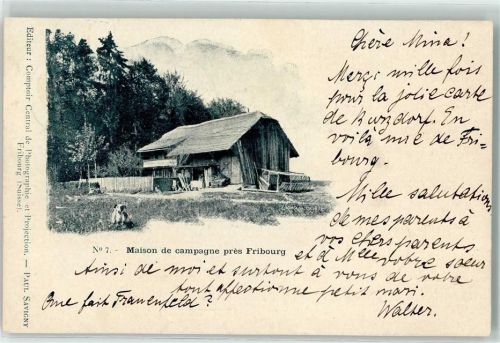 Editeur: Comptoir Central de Photographie et Projection, — PAUL SAVIGNY
Fribourg (Suisse).
Chère Mina!
Merçi mille fois
pour la jolie carte
de Burgdorf. En
voilà une de Fri-
bourg.
Mille salutations
de mes parents à
vos chers parents
et à Mlle votre sœur
No 7. - Maison de campagne près Fribourg
Ainsi de moi et surtout à vous de votre
tout affectionne petit mari.
Que fait Frauenfeld?
Walter.